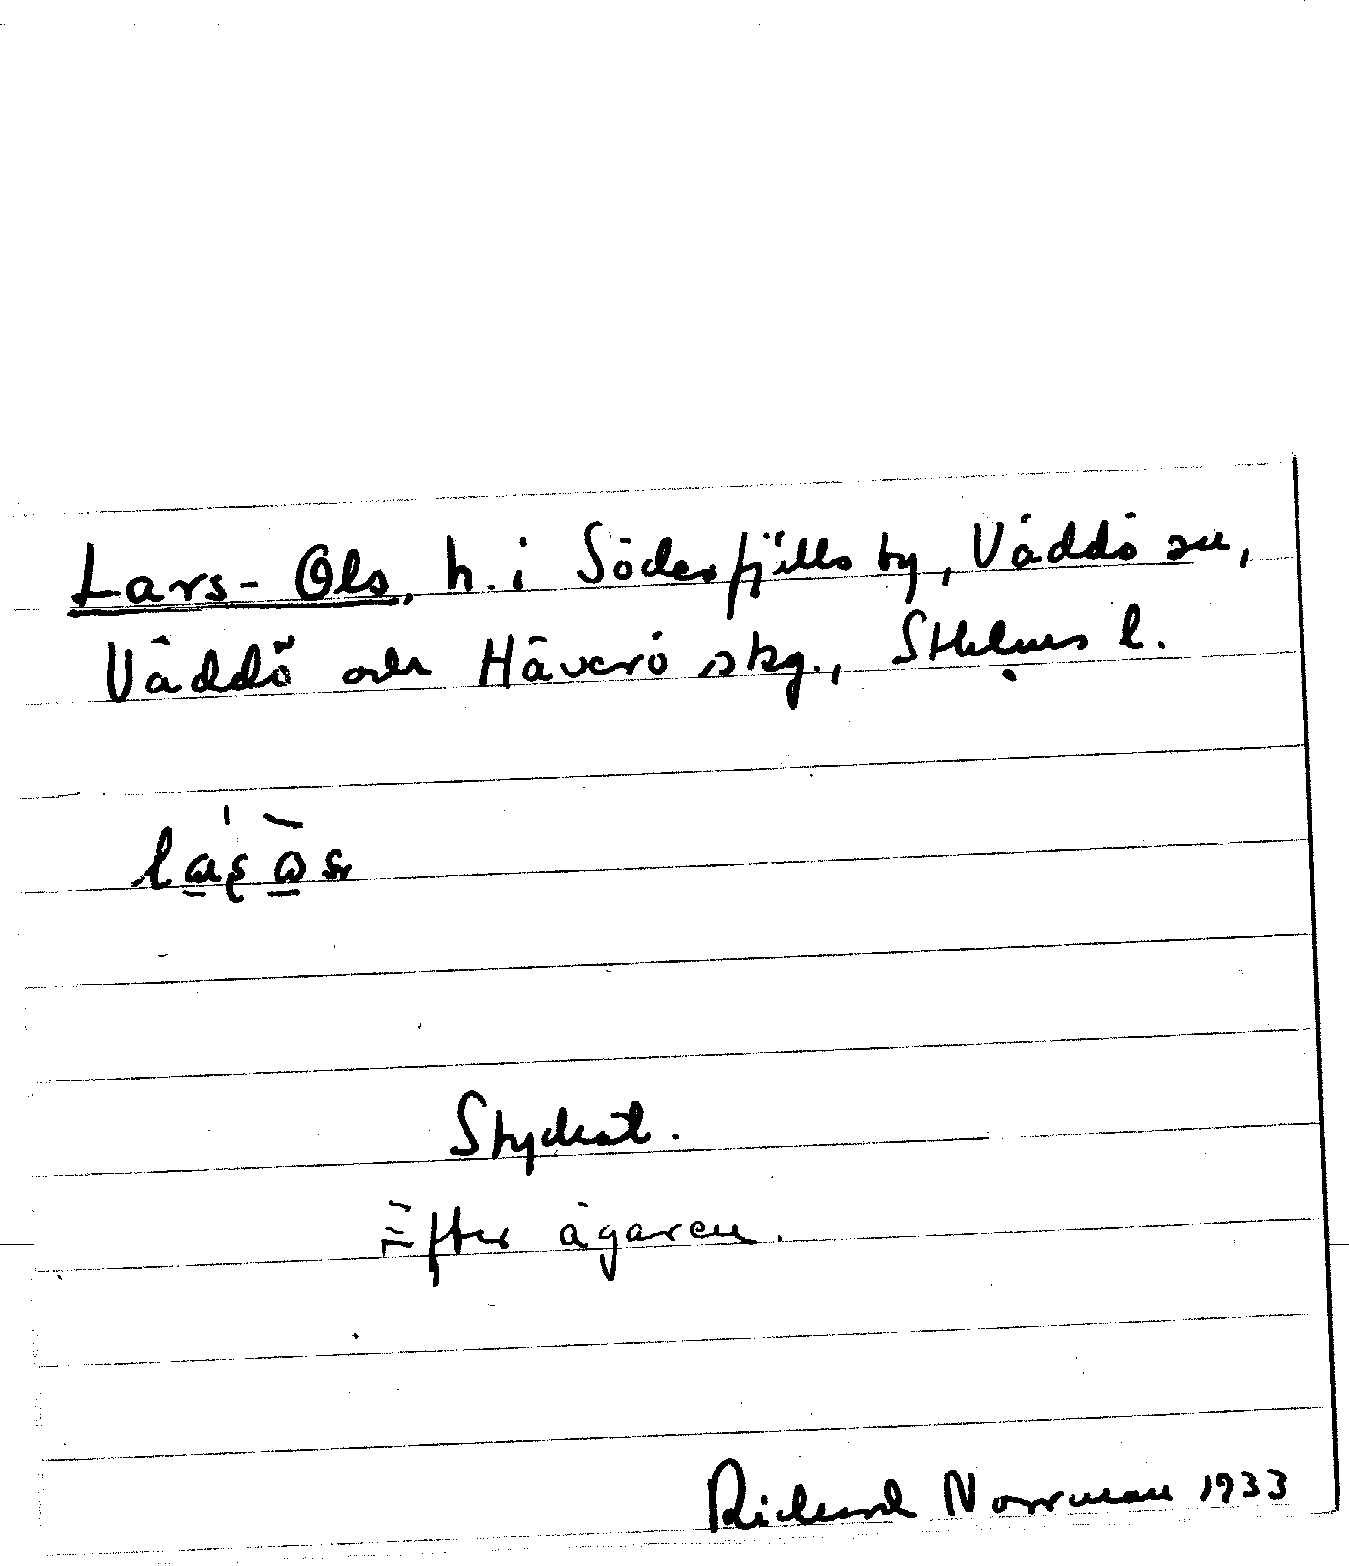 Lars-Ols, h. i Söderfjälls by, Väddö sn,
Väddö och Häverö skg., Sthlms l.
Styckat.
Efter ägaren.
Richard Norrman 1933